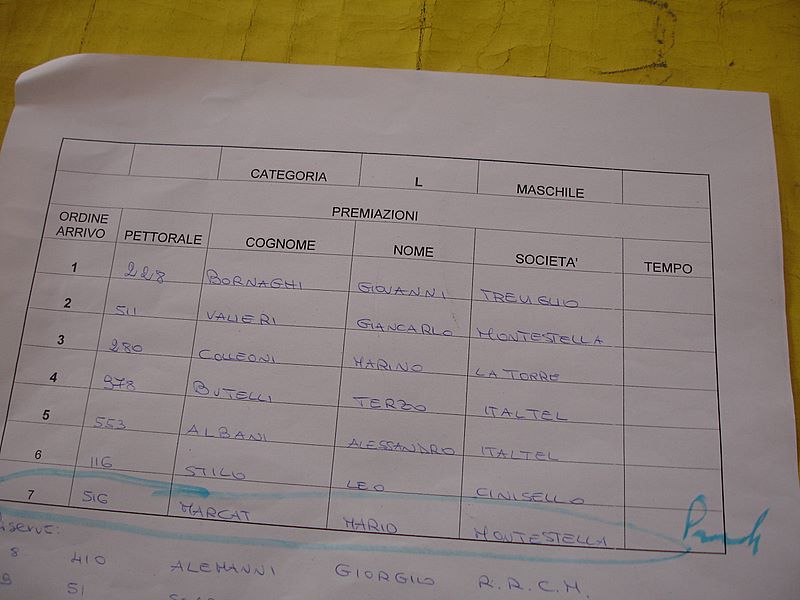 CATEGORIA L MASCHILE
PREMIAZIONI
ORDINE ARRIVO PETTORALE COGNOME NOME SOCIETA' TEMPO
1 228 BORNAGHI GIOVANNI TREVIGLIO
2 511 VALIERI GIANCARLO MONTESTELLA
3 280 COLLEONI MARINO LA TORRE
4 978 BUTELLI TERZO ITALTEL
5 553 ALBANI ALESSANDRO ITALTEL
6 116 STILO LEO CINISELLO
7 516 MARCAT MARIO MONTESTELLA
8 410 ALEMANNI GIORGILO R.R.C.M.
9 51